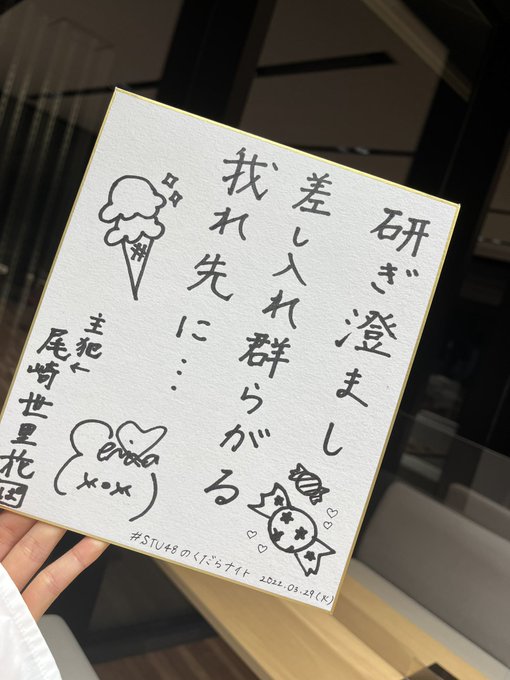 研ぎ澄まし
差し入れ群らがる
我れ先に…
主犯←
尾崎世里花
#STU48のくだらナイト 2022.03.29(火)